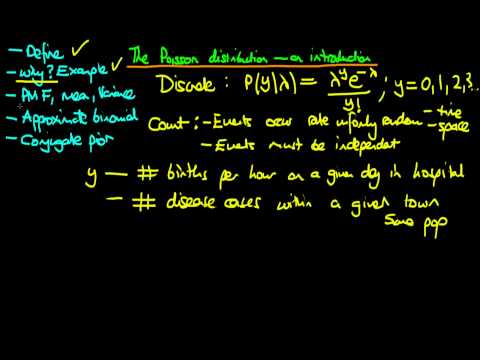 The Poisson distribution — an introduction
— Define ✓
— why? Example ✓
— PMF, mean, Variance
— Approximate binomial
— Conjugate prior
Discrete : P(y|λ) = λ^y e^-λ / y! ; y = 0,1,2,3...
Count : - Events occur rate random - time - space
- Events must be independent
y — # births per hour on a given day in hospital
— # disease cases within a given town
Same pop